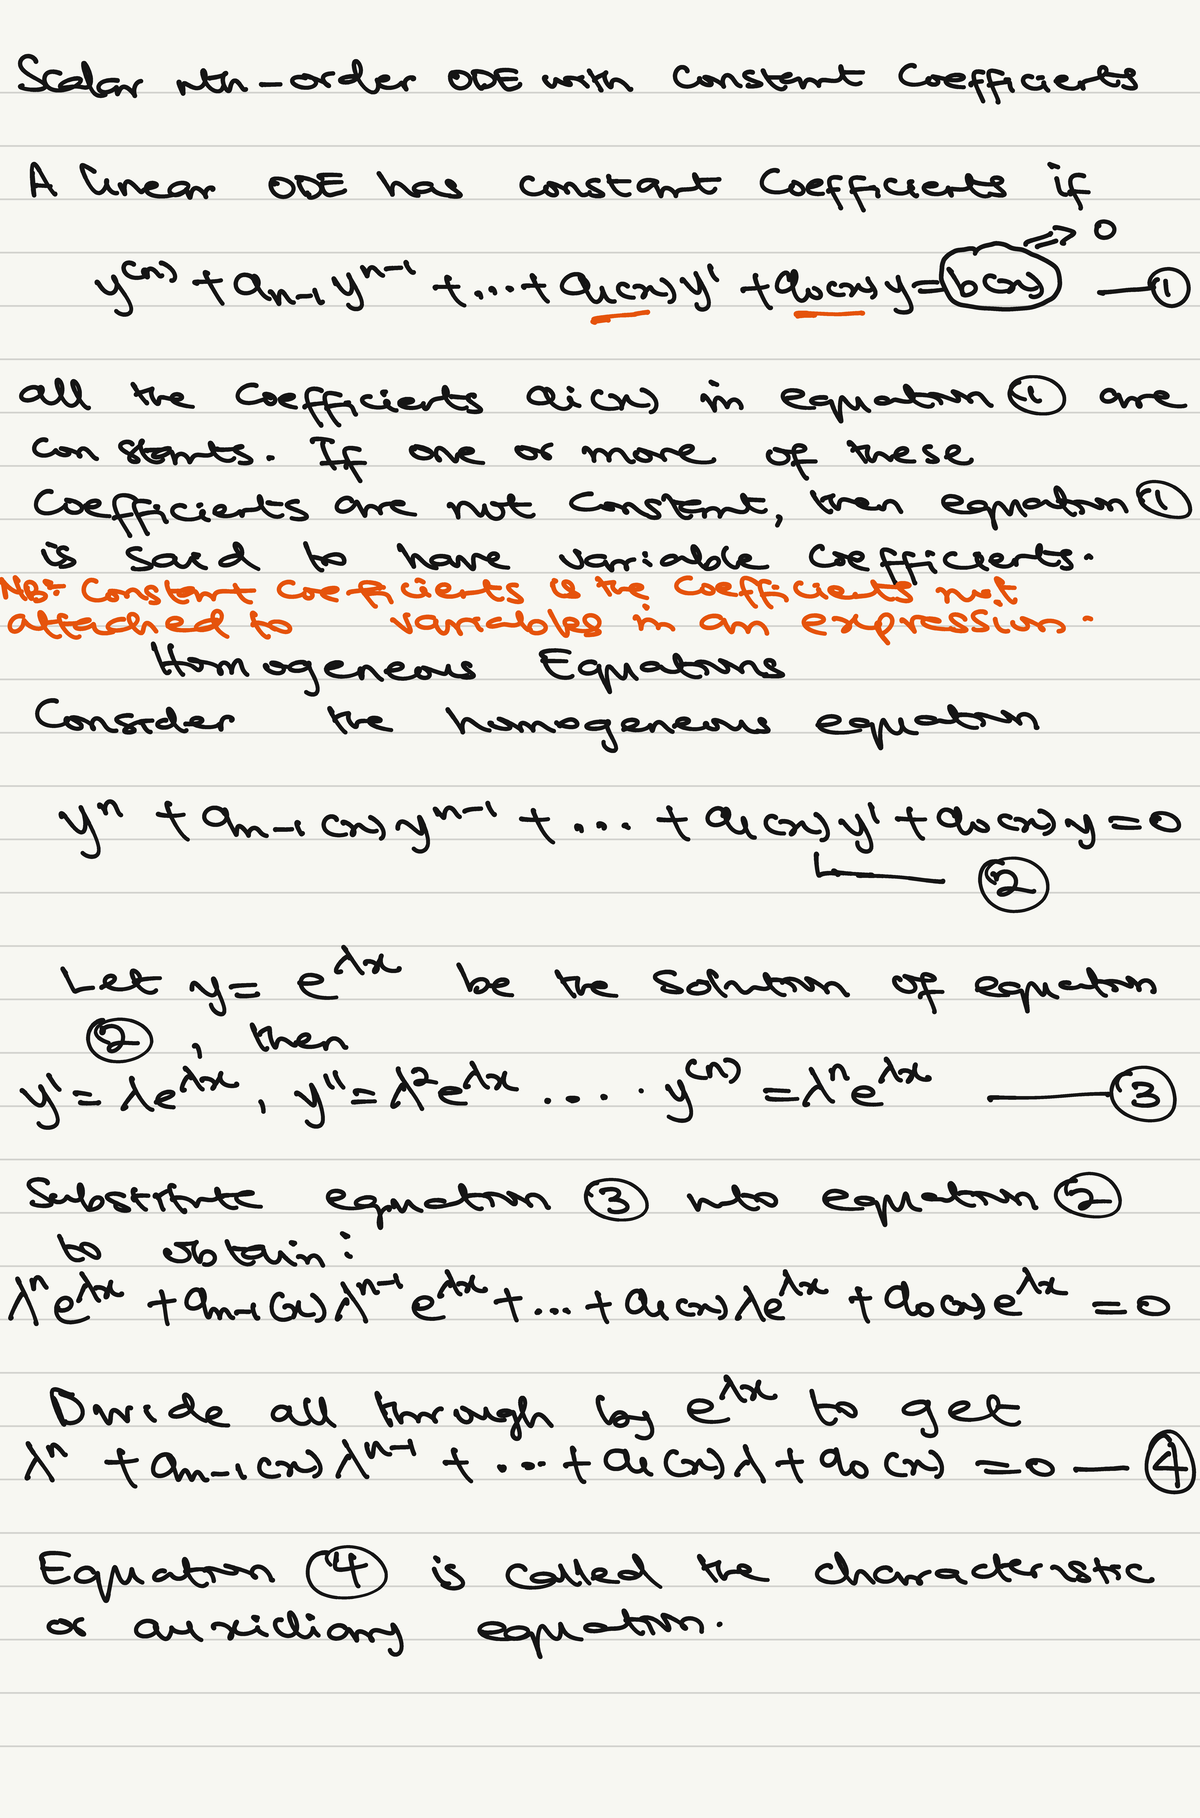 Scalar nth-order ODE with Constant Coefficients
A linear ODE has constant Coefficients if
⇒ 0
y⁽ⁿ⁾ + aₙ₋₁ yⁿ⁻¹ + ... + a₁(x) y' + a₀(x) y = b(x) — ①
all the Coefficients ai(x) in equation ① are
constants. If one or more of these
Coefficients are not Constant, then equation ①
is said to have variable Coefficients.
NB: Constant Coefficients is the Coefficients not
attached to variables in an expression.
Homogeneous Equations
Consider the homogeneous equation
yⁿ + aₙ₋₁(x) yⁿ⁻¹ + ... + a₁(x) y' + a₀(x) y = 0
— ②
Let y = e^λx be the Solution of equation
②, then
y' = λe^λx, y'' = λ²e^λx .... y⁽ⁿ⁾ = λⁿe^λx — ③
Substitute equation ③ into equation ②
to obtain:
λⁿe^λx + aₙ₋₁(x) λⁿ⁻¹ e^λx + ... + a₁(x) λe^λx + a₀(x) e^λx = 0
Divide all through by e^λx to get
λⁿ + aₙ₋₁(x) λⁿ⁻¹ + ... + a₁(x) λ + a₀(x) = 0 — ④
Equation ④ is called the characteristic
or auxiliary equation.